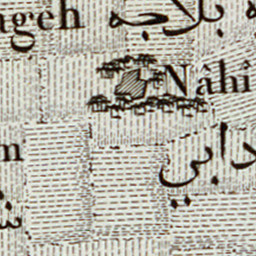 ageh بلاجه
Nâhî
m دابي